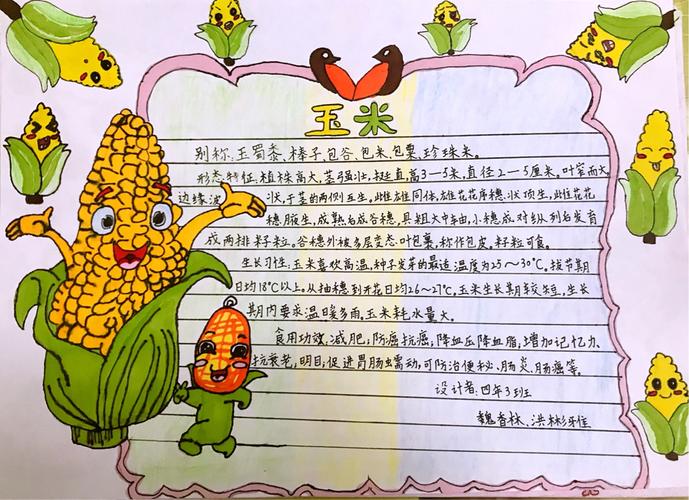 玉米
别称：玉蜀黍、棒子、包谷、包米、包粟、珍珠米。
形态特征：植株高大，茎强壮，挺直，高3—5米，直径2—5厘米。叶窄而大，
边缘波状，于茎的两侧互生，雌雄同体，雄花花序穗状顶生，雌花花
穗腋生，成熟后成谷穗，具粗大中轴，小穗成对纵列后发育
成两排籽粒。谷穗外被多层变态叶包裹，称作包皮。籽粒可食。
生长习性：玉米喜欢高温，种子发芽的最适温度为25～30℃。拔节期
日均18℃以上。从抽穗到开花日均26～27℃。玉米生长期较短，生长
期内要求温暖多雨。玉米耗水量大。
食用功效：减肥，防癌抗癌，降血压降血脂，增加记忆力、
抗衰老，明目，促进胃肠蠕动，可防治便秘、肠炎、肠癌等。
设计者：四年3班
魏香林、洪彬